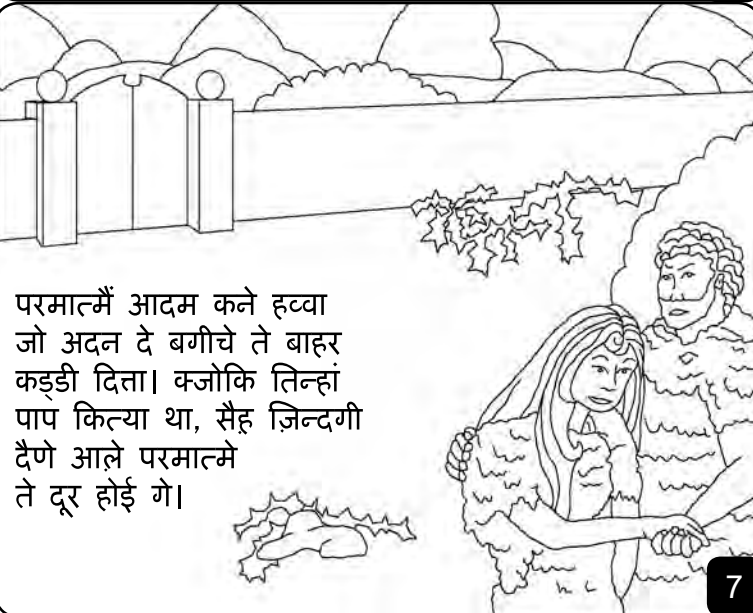 परमात्मैं आदम कने हव्वा
जो अदन दे बगीचे ते बाहर
कड्डी दित्ता। क्जोकि तिन्हां
पाप कित्या था, सैह़ ज़िन्दगी
दैणे आल़े परमात्मे
ते दूर होई गे।
7